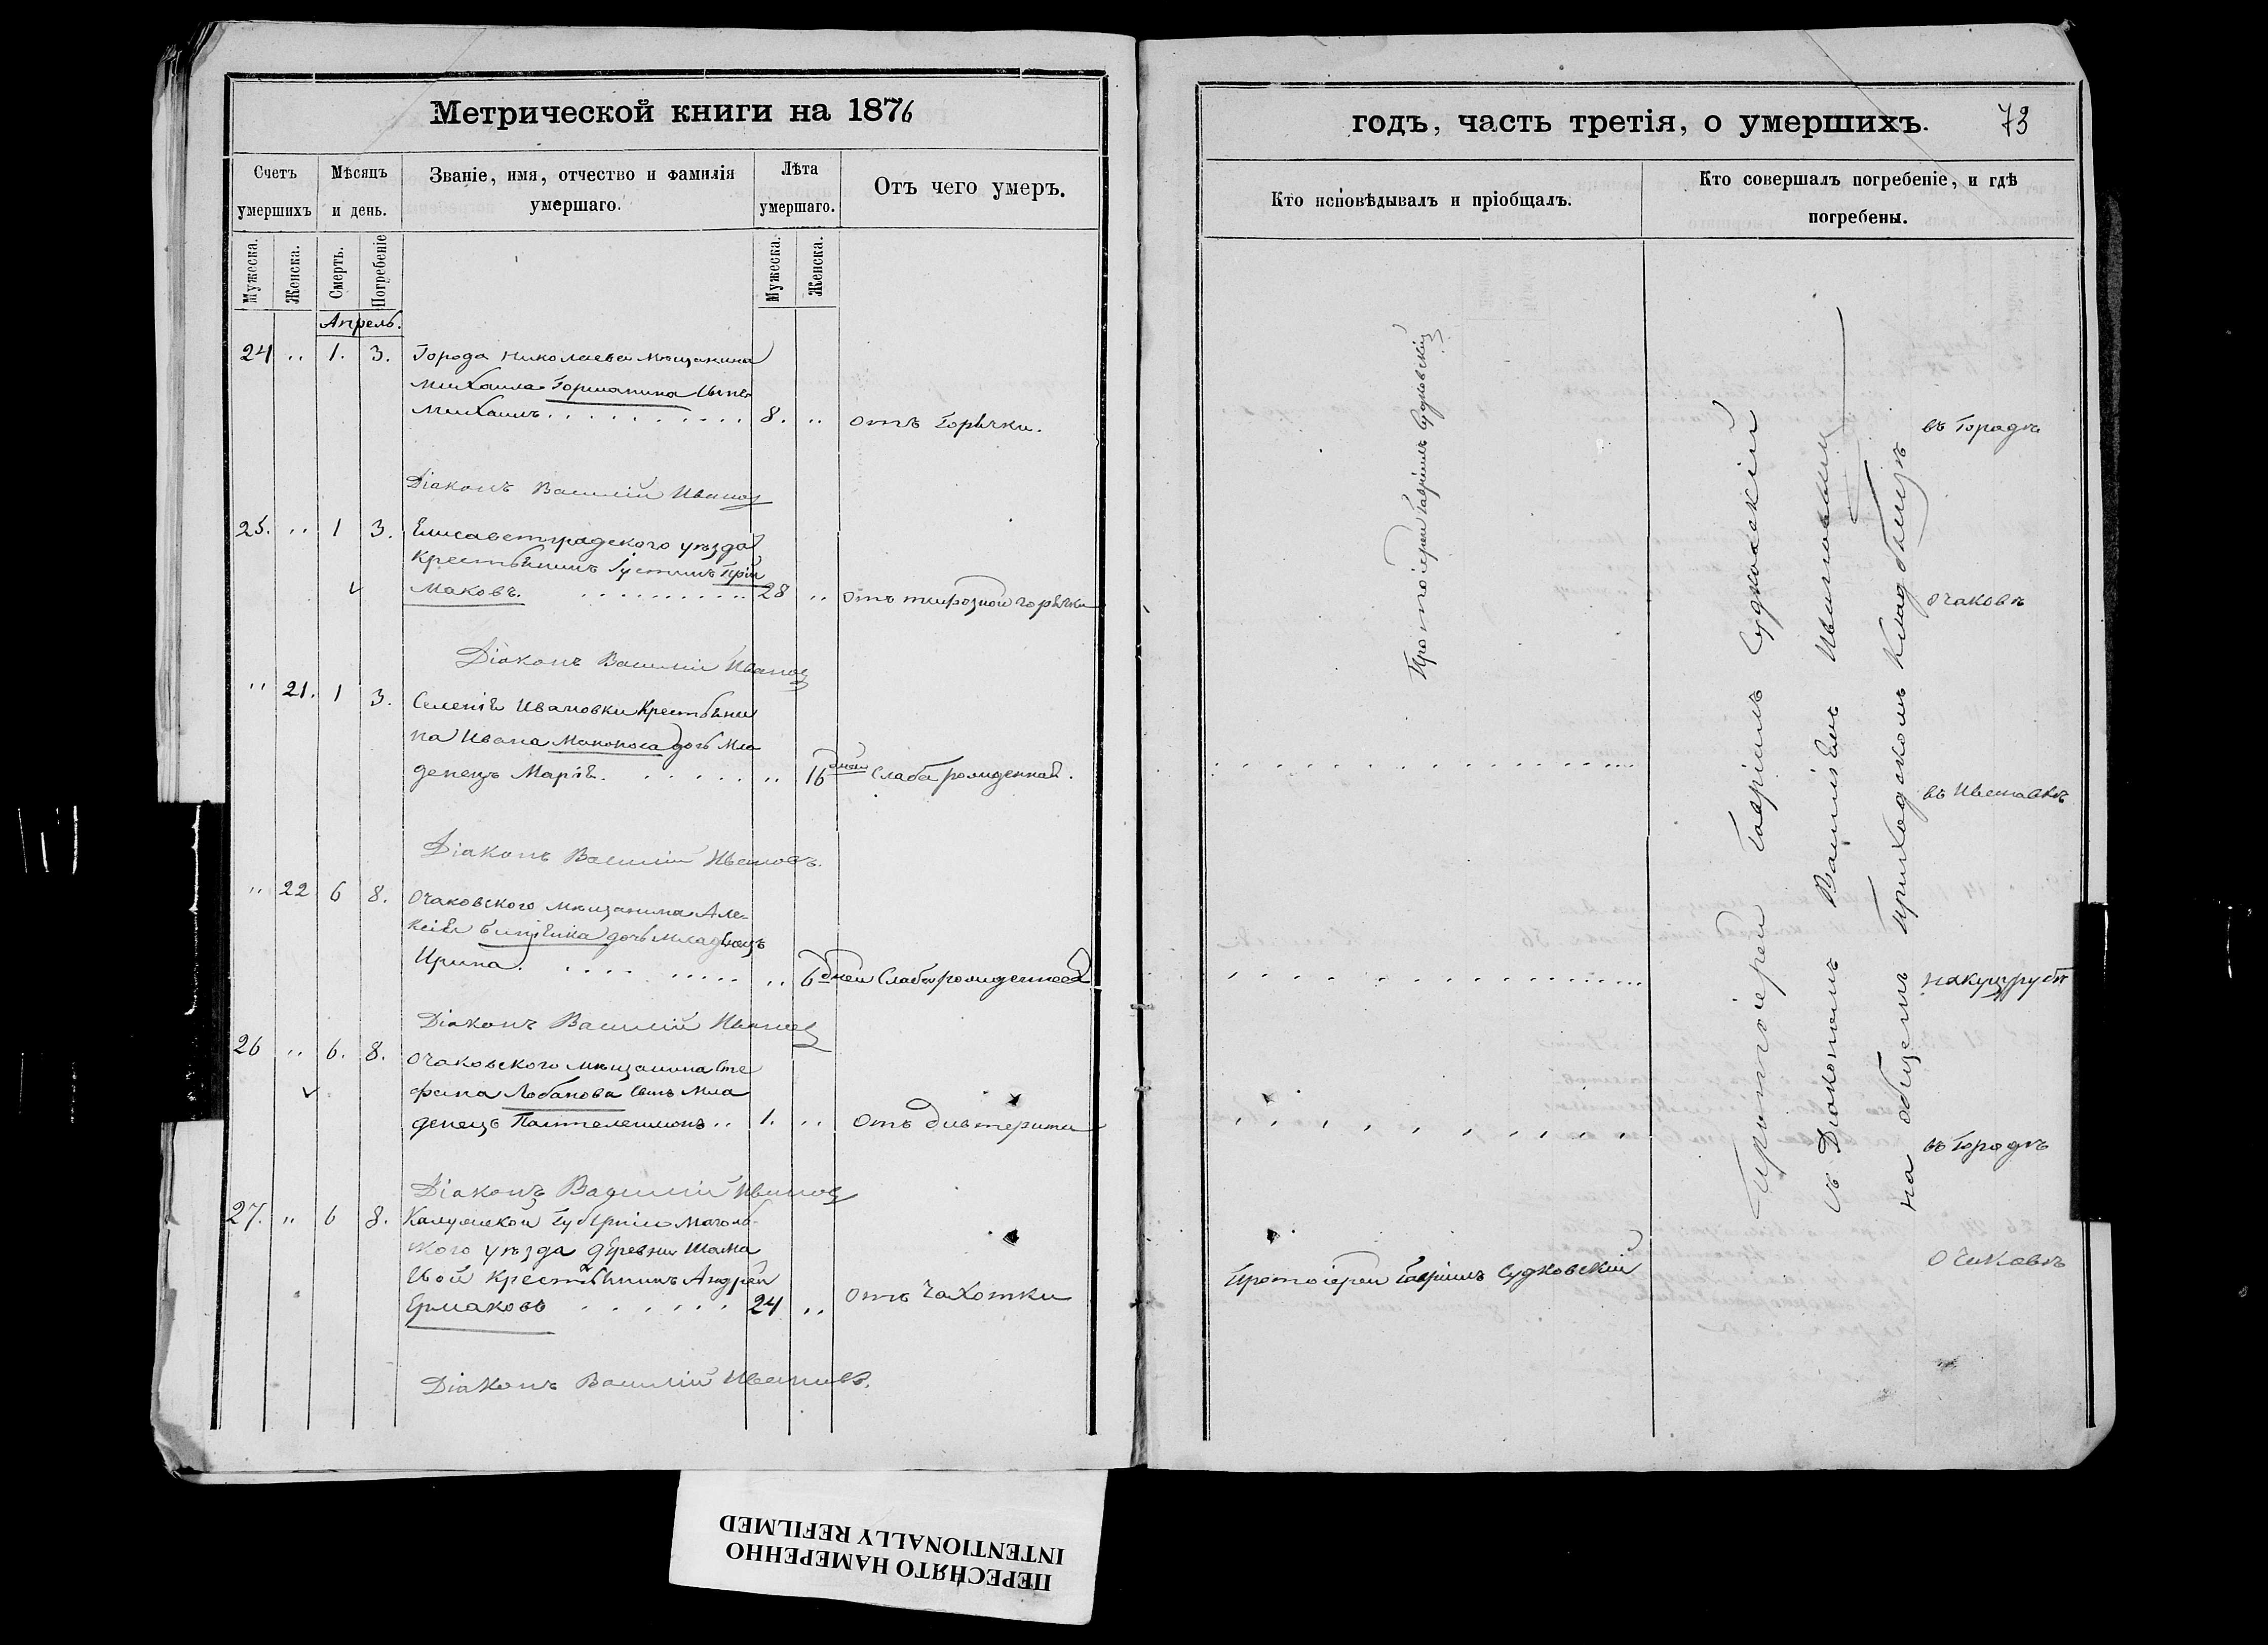 Метрической книги на 1876
Счетъ умершихъ
Мѣсяцъ и день.
Званіе, имя, отчество и фамилія умершаго.
Лѣта умершаго.
Отъ чего умеръ.
Мужеска.
Женска.
Смерть.
Погребеніе
Мужеска.
Женска.
Апрель.
24 " 1. 3. Города Николаева мещанина
Михаила Горманина сынъ
Михаилъ 8. " отъ Горѣчки.
Діаконъ Василій Ивановъ
25. " 1 3. Елисаветградского уѣзда
Крестьянинъ Іустинъ Прій
маковъ. 28 " отъ тифозной горѣчки
Діаконъ Василій Ивановъ
" 21. 1 3. Селенія Ивановки Крестьяни
на Ивана Маконоса дочь мла
денецъ Марія. " 16 дней Слаборожденная.
Діаконъ Василій Ивановъ.
" 22 6 8. Очаковского мещанина Але-
ксія дочь младенецъ
Ирина. " 6 дней Слаборожденная
Діаконъ Василій Ивановъ
26 " 6. 8. Очаковского мещанина Сте
фана Лобанова сынъ мла
денецъ Пантелеимонъ 1. " отъ дифтерита
Діаконъ Василій Ивановъ
27. " 6 8. Калужской Губерніи
ского уѣзда деревни Шама
вой Крестьянинъ Андрей
Ермаковъ 24 " отъ Чахотки
Діаконъ Василій Ивановъ.
годъ, часть третія, о умершихъ. 73
Кто исповѣдывалъ и пріобщалъ.
Кто совершалъ погребеніе, и гдѣ погребены.
Протоіерей Гавріилъ Судковскій
Протоіерей Гавріилъ Судковскій
съ Діакономъ Василіемъ Ивановымъ
на общемъ приходскомъ кладбищѣ
въ Городѣ
Очаковѣ
въ Ивановкѣ
на куцурубѣ
въ Городѣ
Очаковѣ
Протоіерей Гавріилъ Судковскій
ПЕРЕСНЯТО НАМЕРЕННО
INTENTIONALLY REFILMED